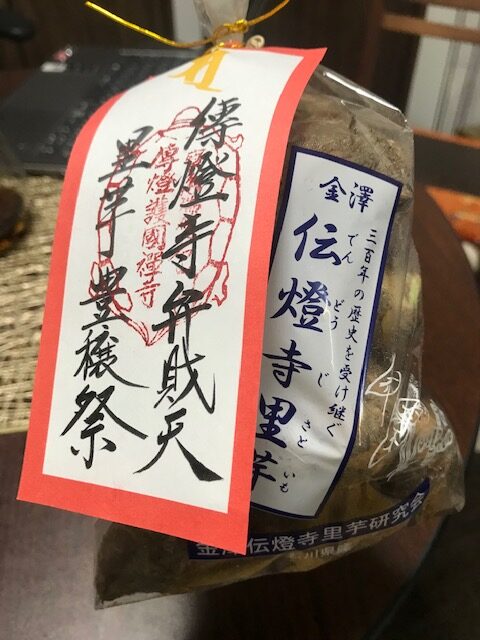 傳燈寺弁財天
里芋豊穣祭
傳燈護國禅寺
金澤
三百年の歴史を受け継ぐ
伝燈寺里芋
でんどうじさといも
金澤伝燈寺里芋研究会